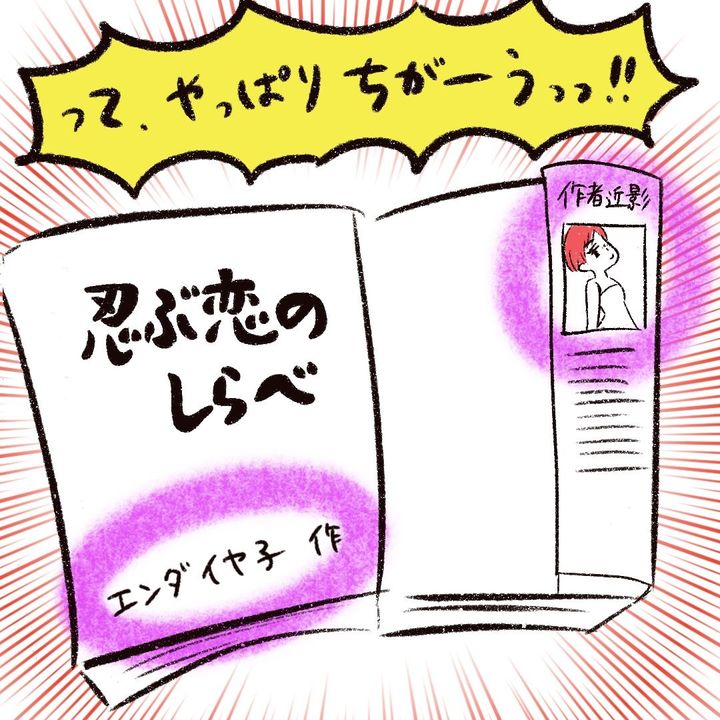 って、やっぱりちがーうっっ!!
作者近影
忍ぶ恋の
しらべ
エンダイヤ子 作